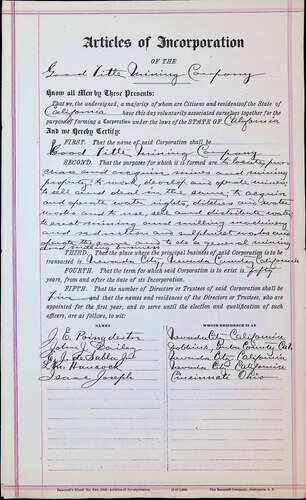 Articles of Incorporation
OF THE
Good Title Mining Company
Know all Men by These Presents:
That we, the undersigned, a majority of whom are Citizens and residents of the State of
California have this day voluntarily associated ourselves together for the
purpose of forming a Corporation under the laws of the STATE OF California
And we Hereby Certify:
FIRST. That the name of said Corporation shall be
Good Title Mining Company
SECOND. That the purposes for which it is formed are to locate, pur-
chase and acquire mines and mining
property, to work, develop and operate mines,
to sell and deal in the same, to acquire
and operate water rights, ditches and water
works and to use, sell and distribute water,
to erect mining and milling machinery
and reduction and sulphuret works and
operate the same, and to do a general mining
and milling business
THIRD. That the place where the principal business of said Corporation is to be
transacted is Nevada City, Nevada County, California
FOURTH. That the term for which said Corporation is to exist is fifty
years, from and after the date of its Incorporation.
FIFTH. That the number of Directors or Trustees of said Corporation shall be
five and that the names and residences of the Directors or Trustees, who are
appointed for the first year, and to serve until the election and qualification of such
officers, are as follows, to wit:
NAMES WHOSE RESIDENCE IS AT
J. E. Poingdestre Nevada City California
John J. Bailey Dobbins, Yuba County, Cal.
E. J. de Sabla Jr Nevada City California
Hancock Nevada City California
Isaac Joseph Cincinnati Ohio